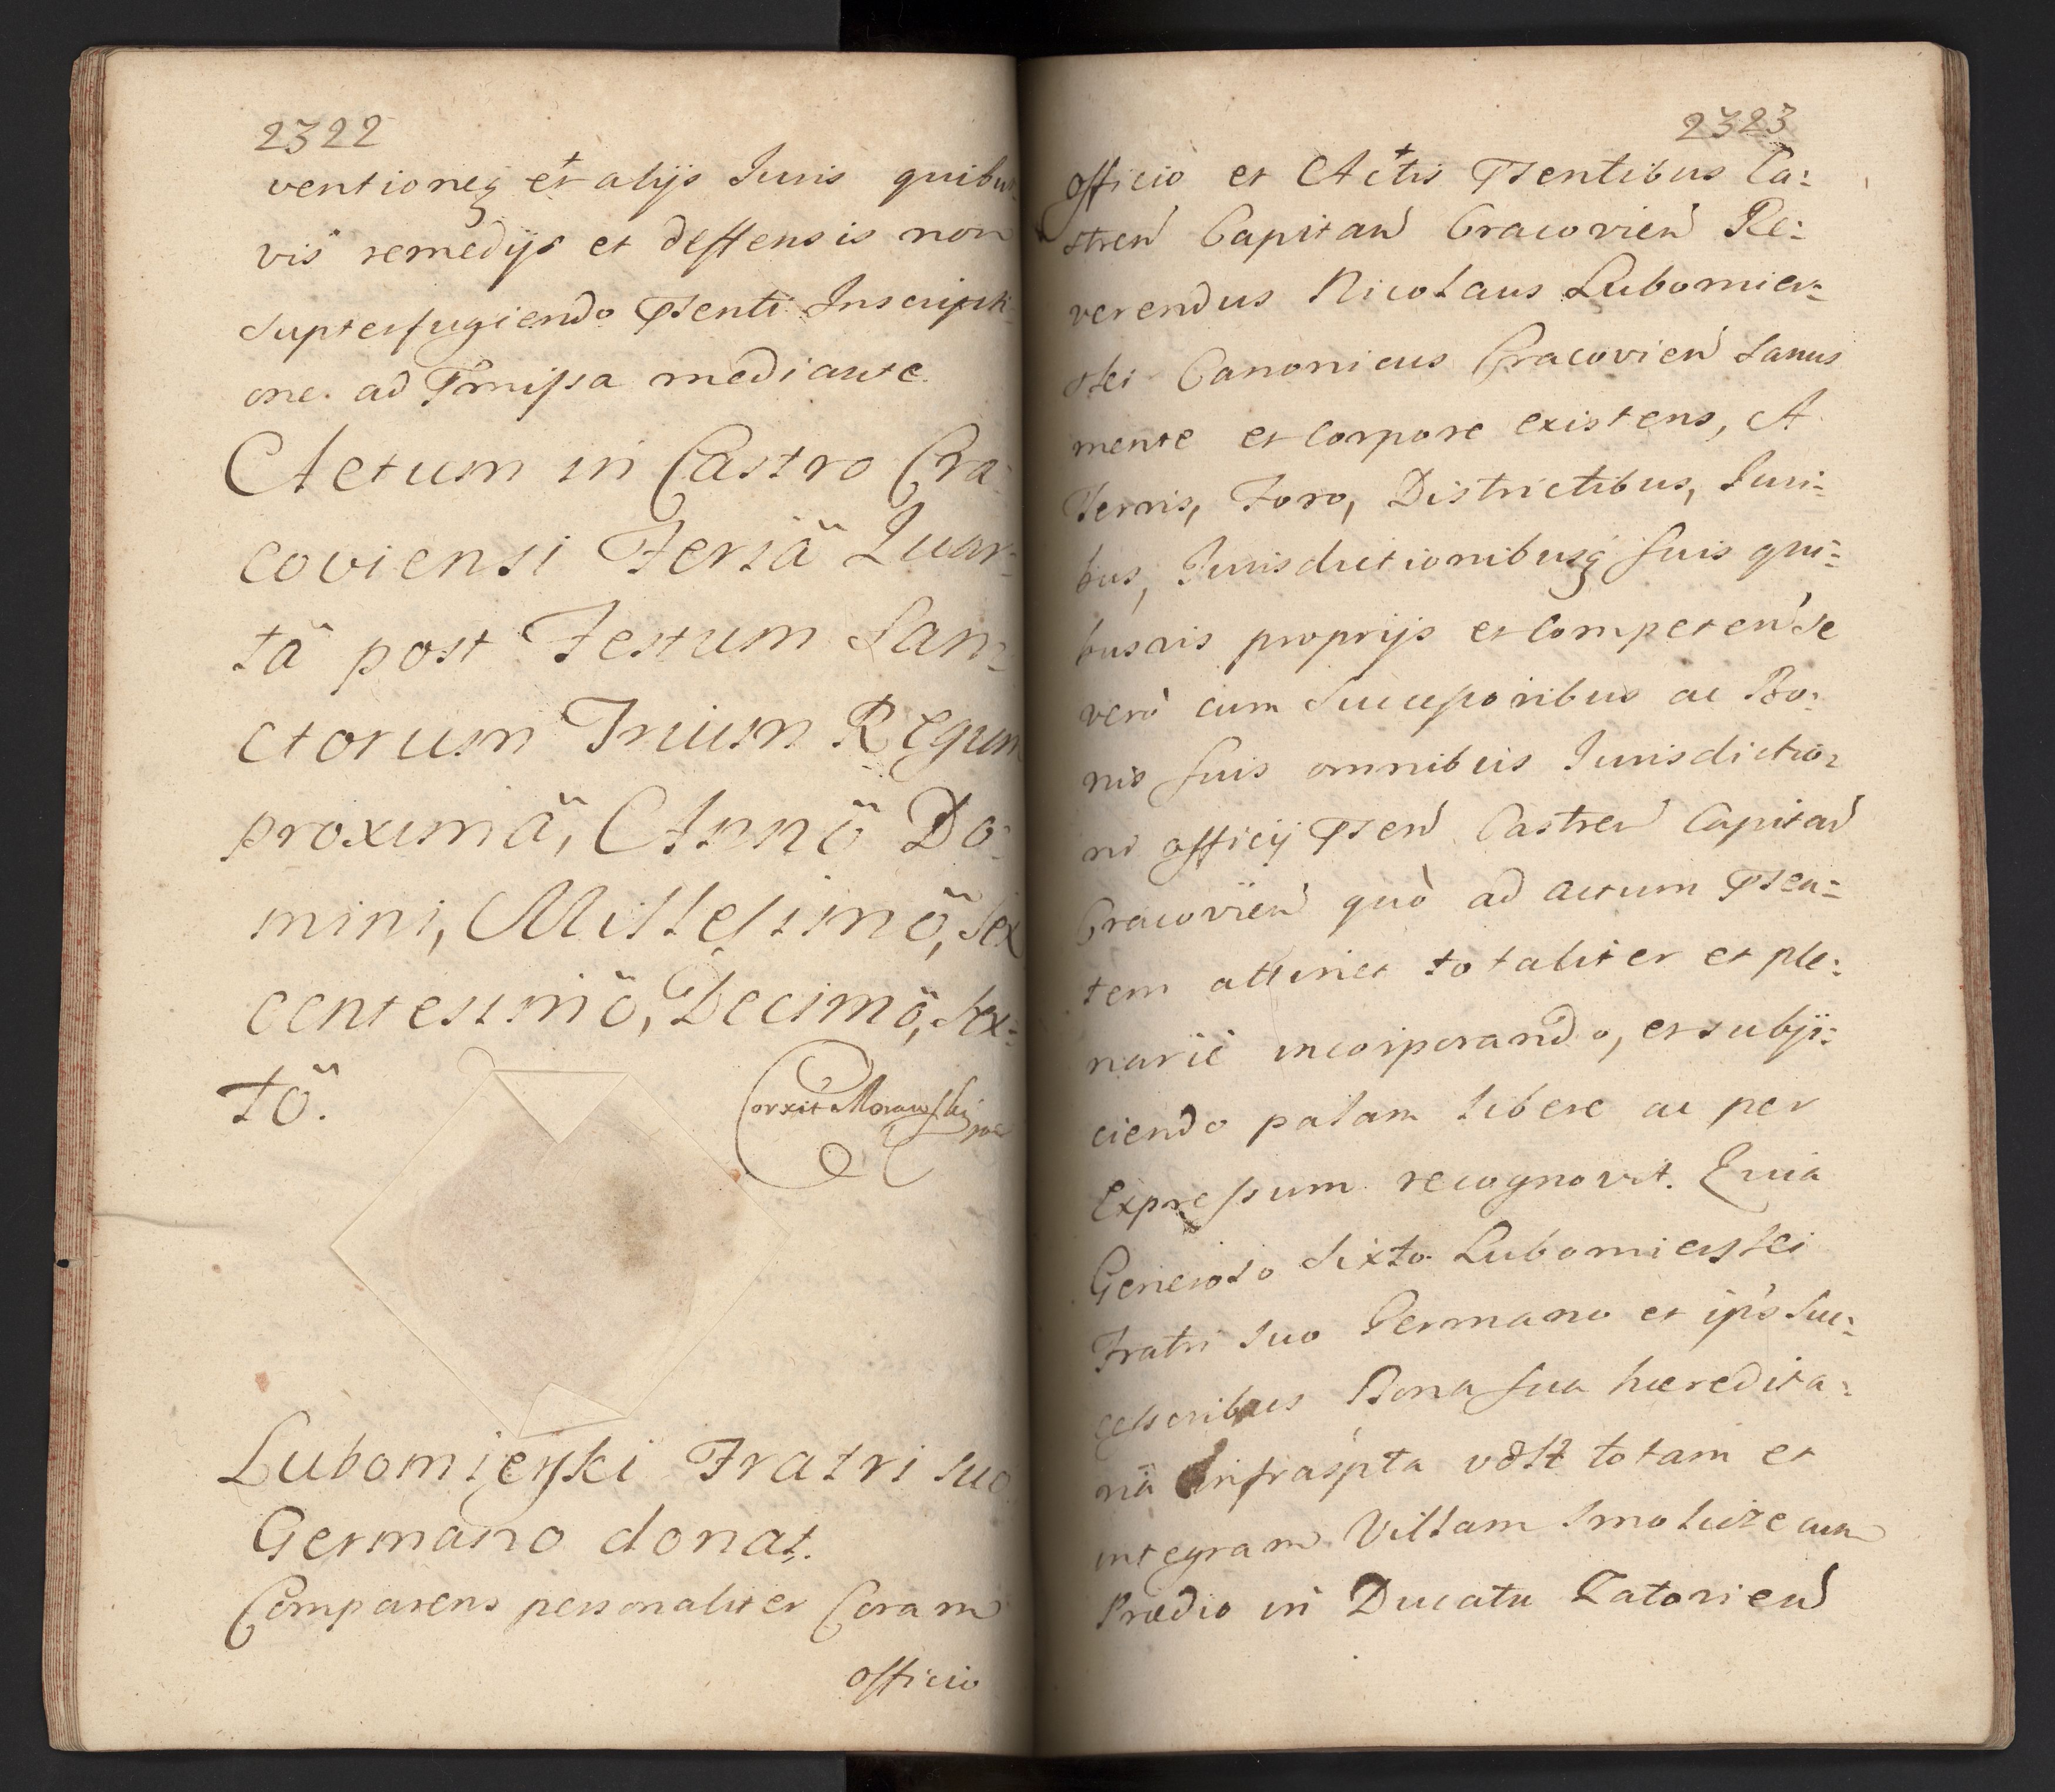 2322
ventioneq et alijs Iuris quibus
vis remedijs et deffensis non
Supterfugiendo Psenti Inscripti-
one. ad Pmissa mediante.
Actum in Castro Cra-
coviensi Feriâ Quar-
tâ post Festum San-
ctorum Trium Regum
proximâ, Annô Do-
mini, Millesimô, Sex
centesimô, Decimô, Sex-
tô.
Corxit Morawski
Lubomierski Fratri suo
Germano donat.
Comparens personaliter Coram
officio
2323
officio et Actis Psentibus Ca:
stren Capitan Cracovien Re:
verendus Nicolaus Lubomier=
ski Canonicus Cracovien Sanus
mente et Corpore existens, A
Terris, Foro, Districtibus, Iuri=
bus, Iurisdictionibusq suis qui=
busvis proprijs et Competen Se
verò cum Successoribus ac Bo:
nis suis omnibus Iurisdictio=
ni officij Psen Castren Capitan
Cracovien quò ad actum Psen=
tem attinet totaliter et ple:
nariè incorporando, et subji:
ciendo palam libere ac per
Expressum recognovit. Quia
Generoso Sixto Lubomierski
Fratri suo Germano et ips Suc:
cessoribus Bona sua hæredita:
ria Infrascpta vdlt totam et
integram Villam Smolice cum
Prædio in Ducatu Zatorien